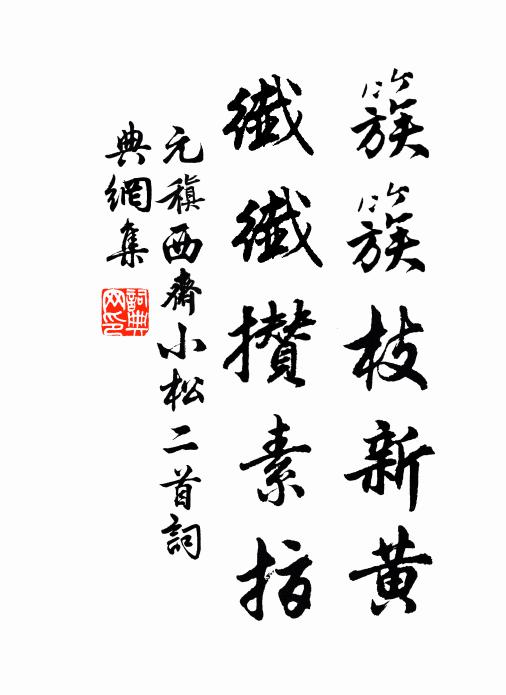 簇簇枝新黄
纖纖攢素指
元稹西齋小松二首詞
典網集
詞典網印